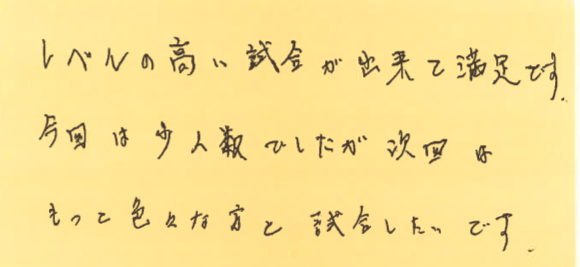 レベルの高い試合が出来て満足です.
今回は少人数でしたが次回は
もっと色々な方と試合したいです.